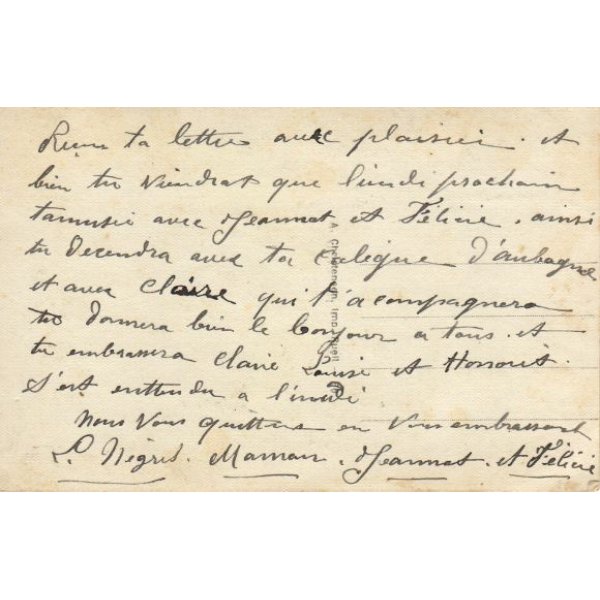 Reçu ta lettre avec plaisir et
bien tu viendrat que lundi prochain
tamusé avec Jeannet et Félicie, ainsi
tu decendra avec ta colègue d'aubagne
et avec Claire qui t'acompagnera
tu donnera bien le bonjour a tous et
tu embrassera Claire Louise et Honorit.
S'est entendu a lundi
Nous vous quittons en vous embrassant
L. Négrel. Maman. Jeannet. et Félicie